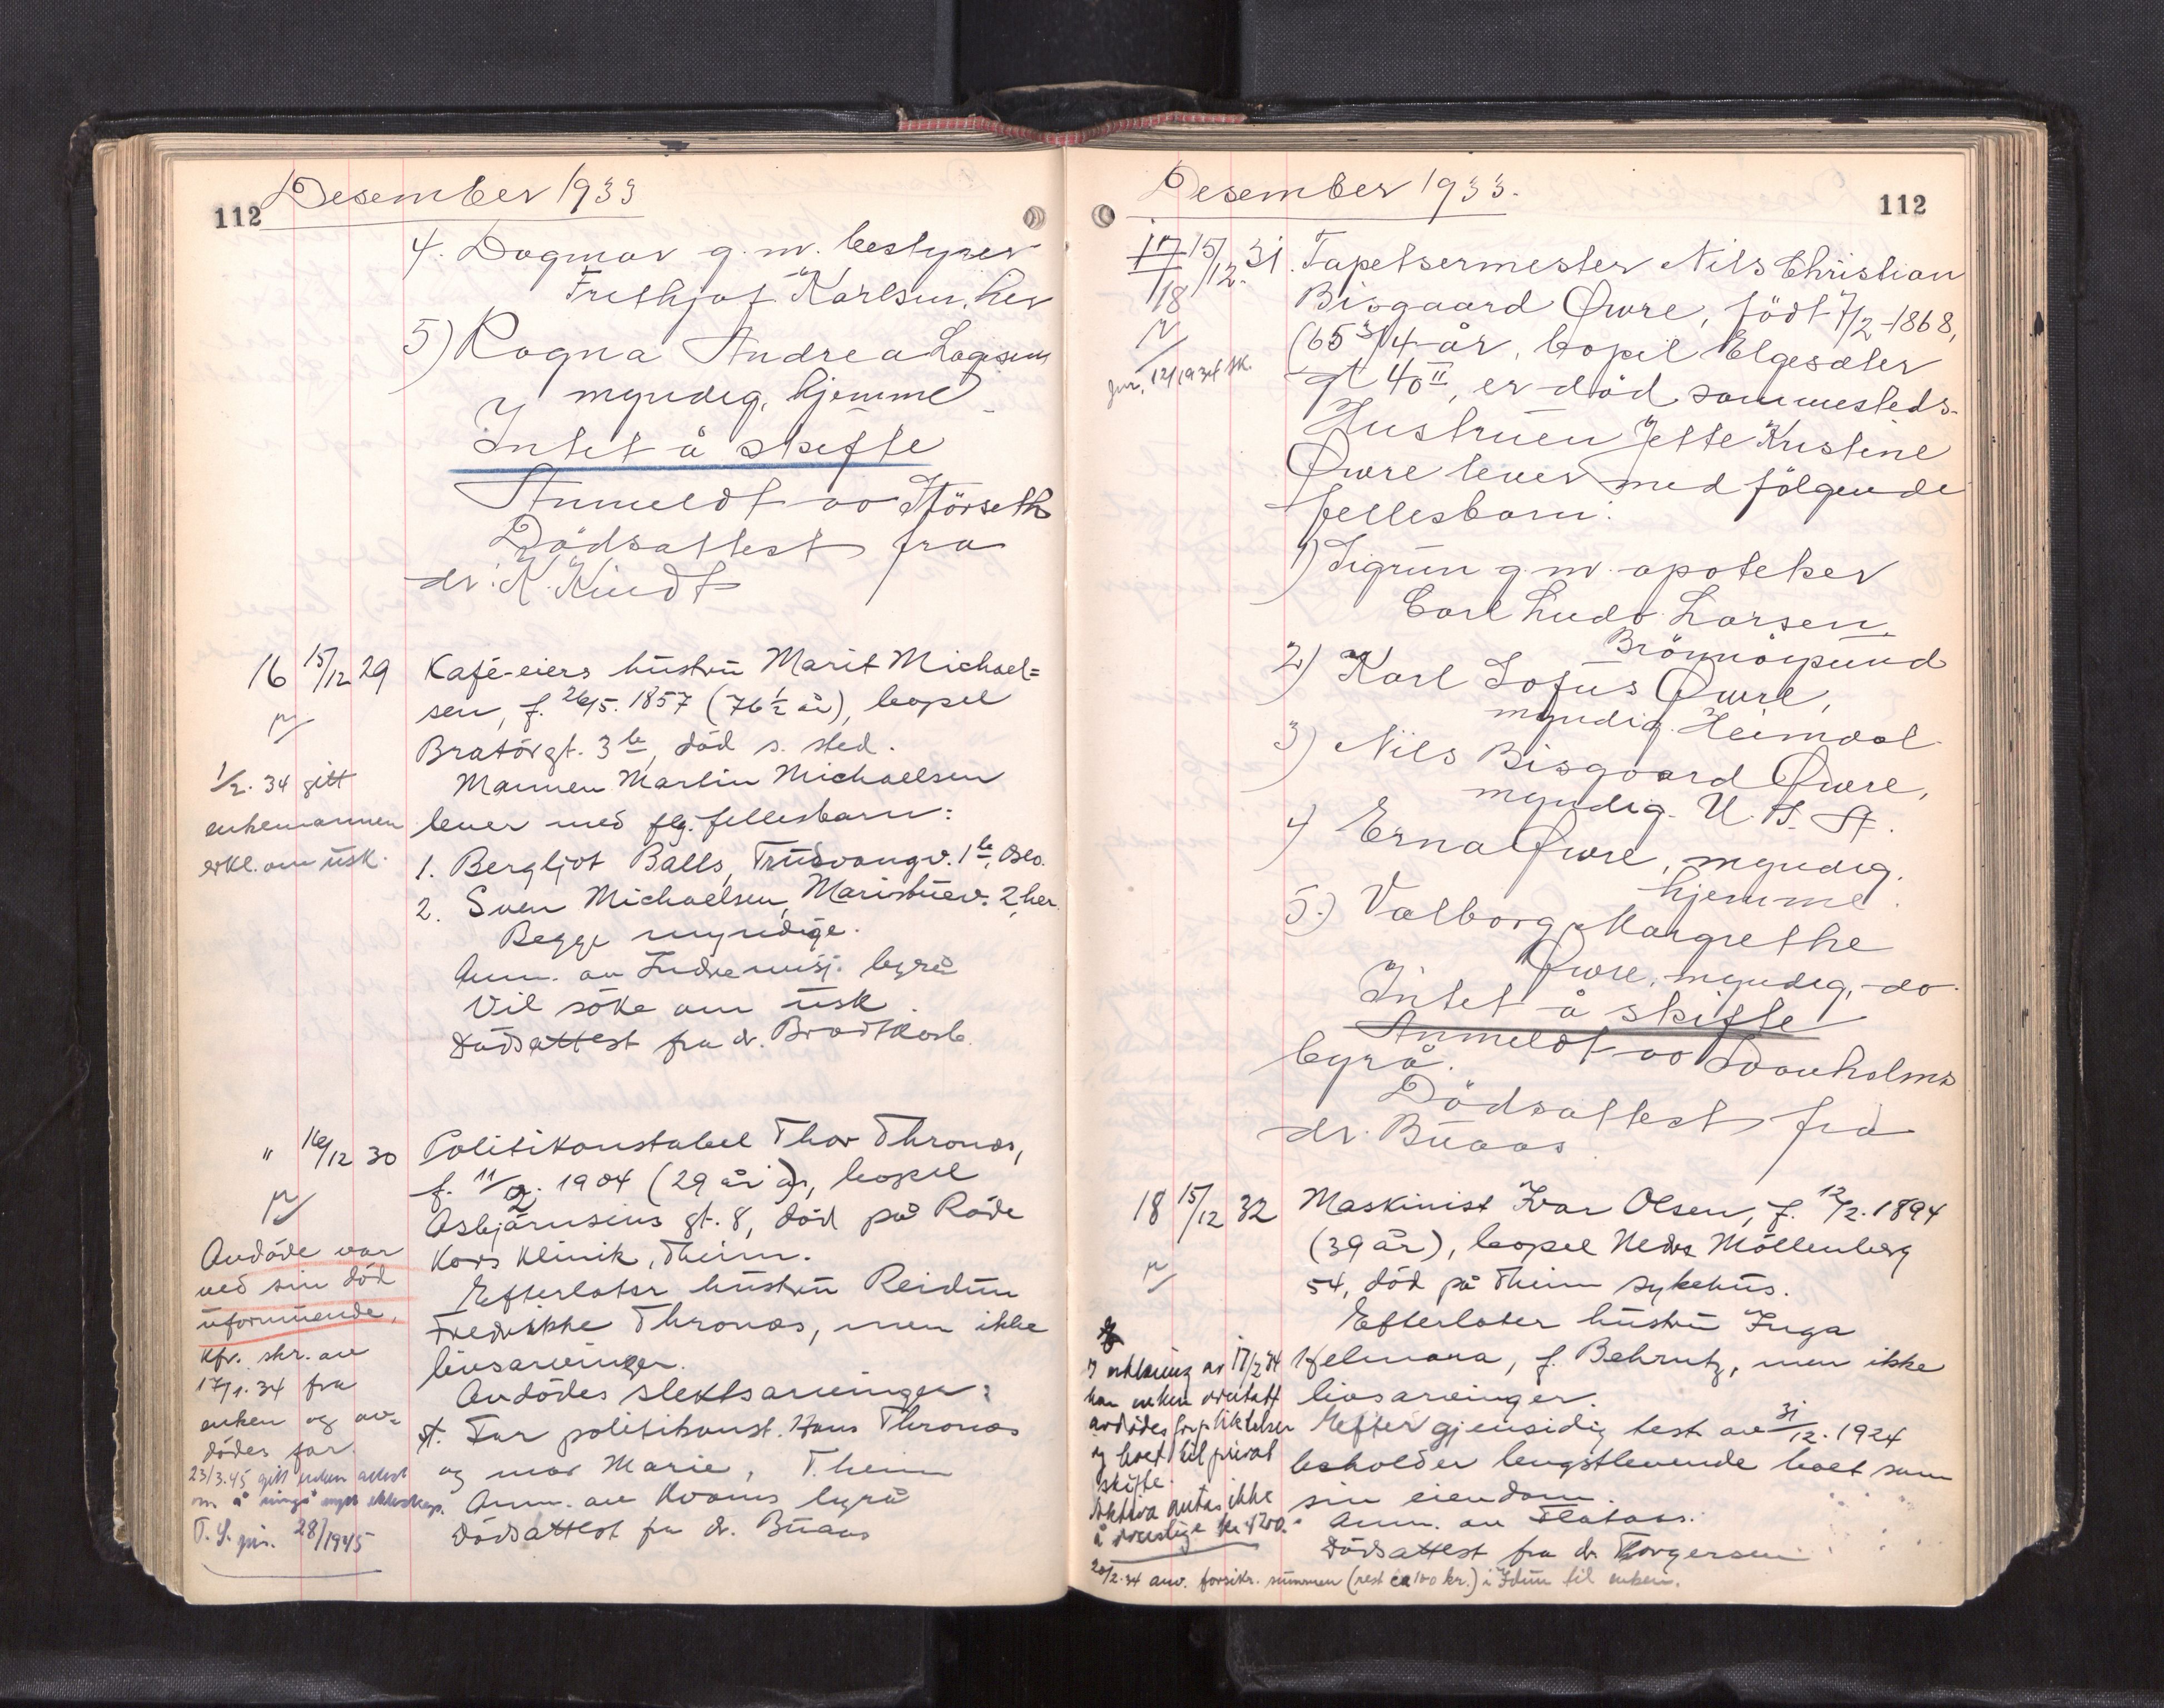 112
Desember 1933
4. Dagmar g. m. bestyrer
Frethjof Karlsen, her
5) Ragna Andrea Lagesen
myndig, hjemme
Intet å skifte
Anmeldt av Hörseth
Dödsattest fra
dr. K. Kindt
16 15/12 29 Kafé-eiers hustru Marit Michael=
sen, f. 26/5. 1857 (76 1/2 år), bopel
Bratörgt. 3 b, död s. sted.
Mannen Martin Michaelsen
lever med flg. fellesbarn:
1. Bergljot Balls, Trudvangv. 1 b, Oslo.
2. Sven Michaelsen, Maristuev. 2, her.
Begge myndige.
Anm. av Indremisj. byrå
Vil söke om usk.
Dödsattest fra dr. Brodtkorb.
1/2. 34 gitt
enkemannen
erkl. om usk.
" 16/12 30 Politikonstabel Thor Thronæs,
f. 11/2. 1904 (29 år), bopel
Asbjörnsens gt. 8, död på Röde
Kors Klinik, Theim.
Efterlater hustru Reidun
Fredrikke Thronæs, men ikke
livsarvinger.
Avdödes slektsarvinger:
Far politikonst. Hans Thronæs
og mor Marie, T.heim
Anm. av Kvams byrå
Dödsattest fra dr. Buaas
Avdöde var
ved sin död
uformuende,
kfr. skr. av
17/1. 34 fra
enken og av=
dödes far.
23/3.45 gitt enken attest
om å inngå nytt ekteskap.
T. S. jnr. 28/1945
112
Desember 1933.
17 15/12. 31. Tapetsermester Nils Christian
18
Bisgaard Qvvre, födt 7/2-1868,
(65 3/4 år, bopel Elgesæter
gt 40 II, er död sammesteds.
Jnr. 12/1934 sk.
Hustruen Jette Kristine
Qvvre lever med fölgende
fellesbarn:
1) Sigrun g. m. apoteker
Carl Ludv. Larsen,
Brönnöysund
2) Karl Sofus Qvvre,
myndig. Heimdal
3) Nils Bisgaard Qvvre,
myndig. U. S. A.
4) Erna Qvvre, myndig,
hjemme.
5.) Valborg Margrethe
Qvvre, myndig, do
Intet å skifte
Anmeldt av Svanholms
byrå.
Dödsattest fra
dr. Buaas
18 15/12 32 Maskinist Ivar Olsen, f. 12/2. 1894
(39 år), bopel Nedre Möllenberg
54, död på Theim sykehus.
Efterlater hustru Inga
Helmara, f. Behrntz, men ikke
livsarvinger.
Efter gjensidig test. av 31/12. 1924
beholder lengstlevende boet som
sin eiendom.
Anm. av Flataas.
Dödsattest fra dr. Torgersen
I erklæring av 17/2 34
har enken overtatt
avdödes forpliktelser
og boet til privat
skifte.
Aktiva antas ikke
å overstige kr. 1200.
20/2. 34 anv. forsikr. summen (rest ca 100 kr.) i Idun til enken.